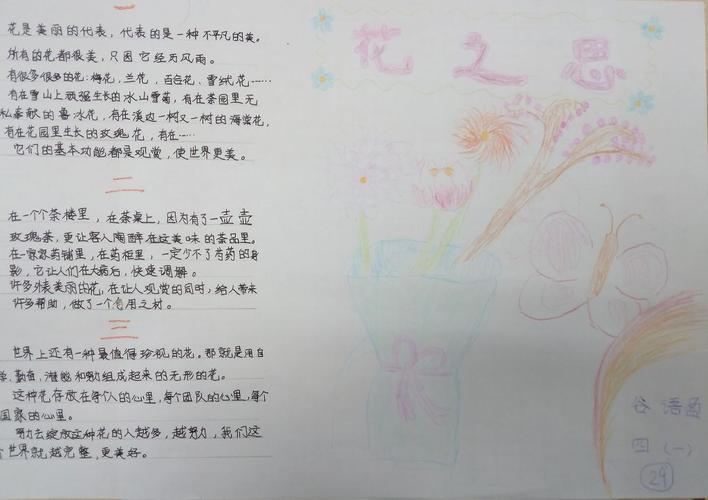 一
花是美丽的代表，代表的是一种不平凡的美。
所有的花都很美，只因它经历风雨。
有很多很多的花：梅花，兰花，百合花，雪绒花……
有在雪山上顽强生长的冰山雪菊，有在茶园里无
私奉献的喜水花，有在溪边一树又一树的海棠花，
有在花园里生长的玫瑰花，有在……
它们的基本功能都是观赏，使世界更美。
二
在一个个茶楼里，在茶桌上，因为有了一壶壶
玫瑰茶，更让客人陶醉在这美味的茶品里。
在一家家药铺里，在药柜里，一定少不了芍药的身
影，它让人们在大病后，快速调解。
许多外表美丽的花，在让人观赏的同时，给人带来
许多帮助，做了一个有用之材。
三
世界上还有一种最值得珍视的花。那就是用自
学，勤奋，潜能和勤组成起来的无形的花。
这种花存放在每个人的心里，每个团队的心里，每个
国家的心里。
努力去绽放这种花的人越多，越努力，我们这
个世界就越完整，更美好。
花之思
谷语函
四（一）
24